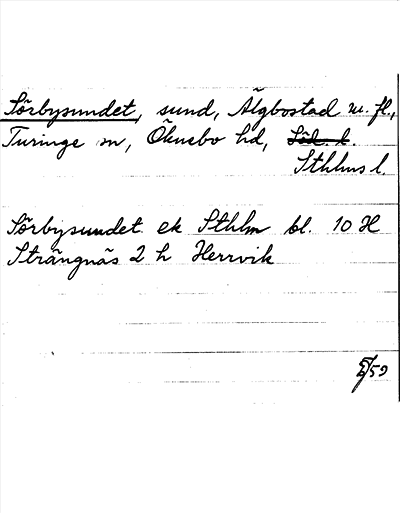 Sörbysundet, sund, Älgbostad m. fl.,
Turinge sn, Öknebo hd, Söd. l.
Sthlms l.
Sörbysundet ek Sthlm bl. 10 H
Strängnäs 2 h Herrvik
/59